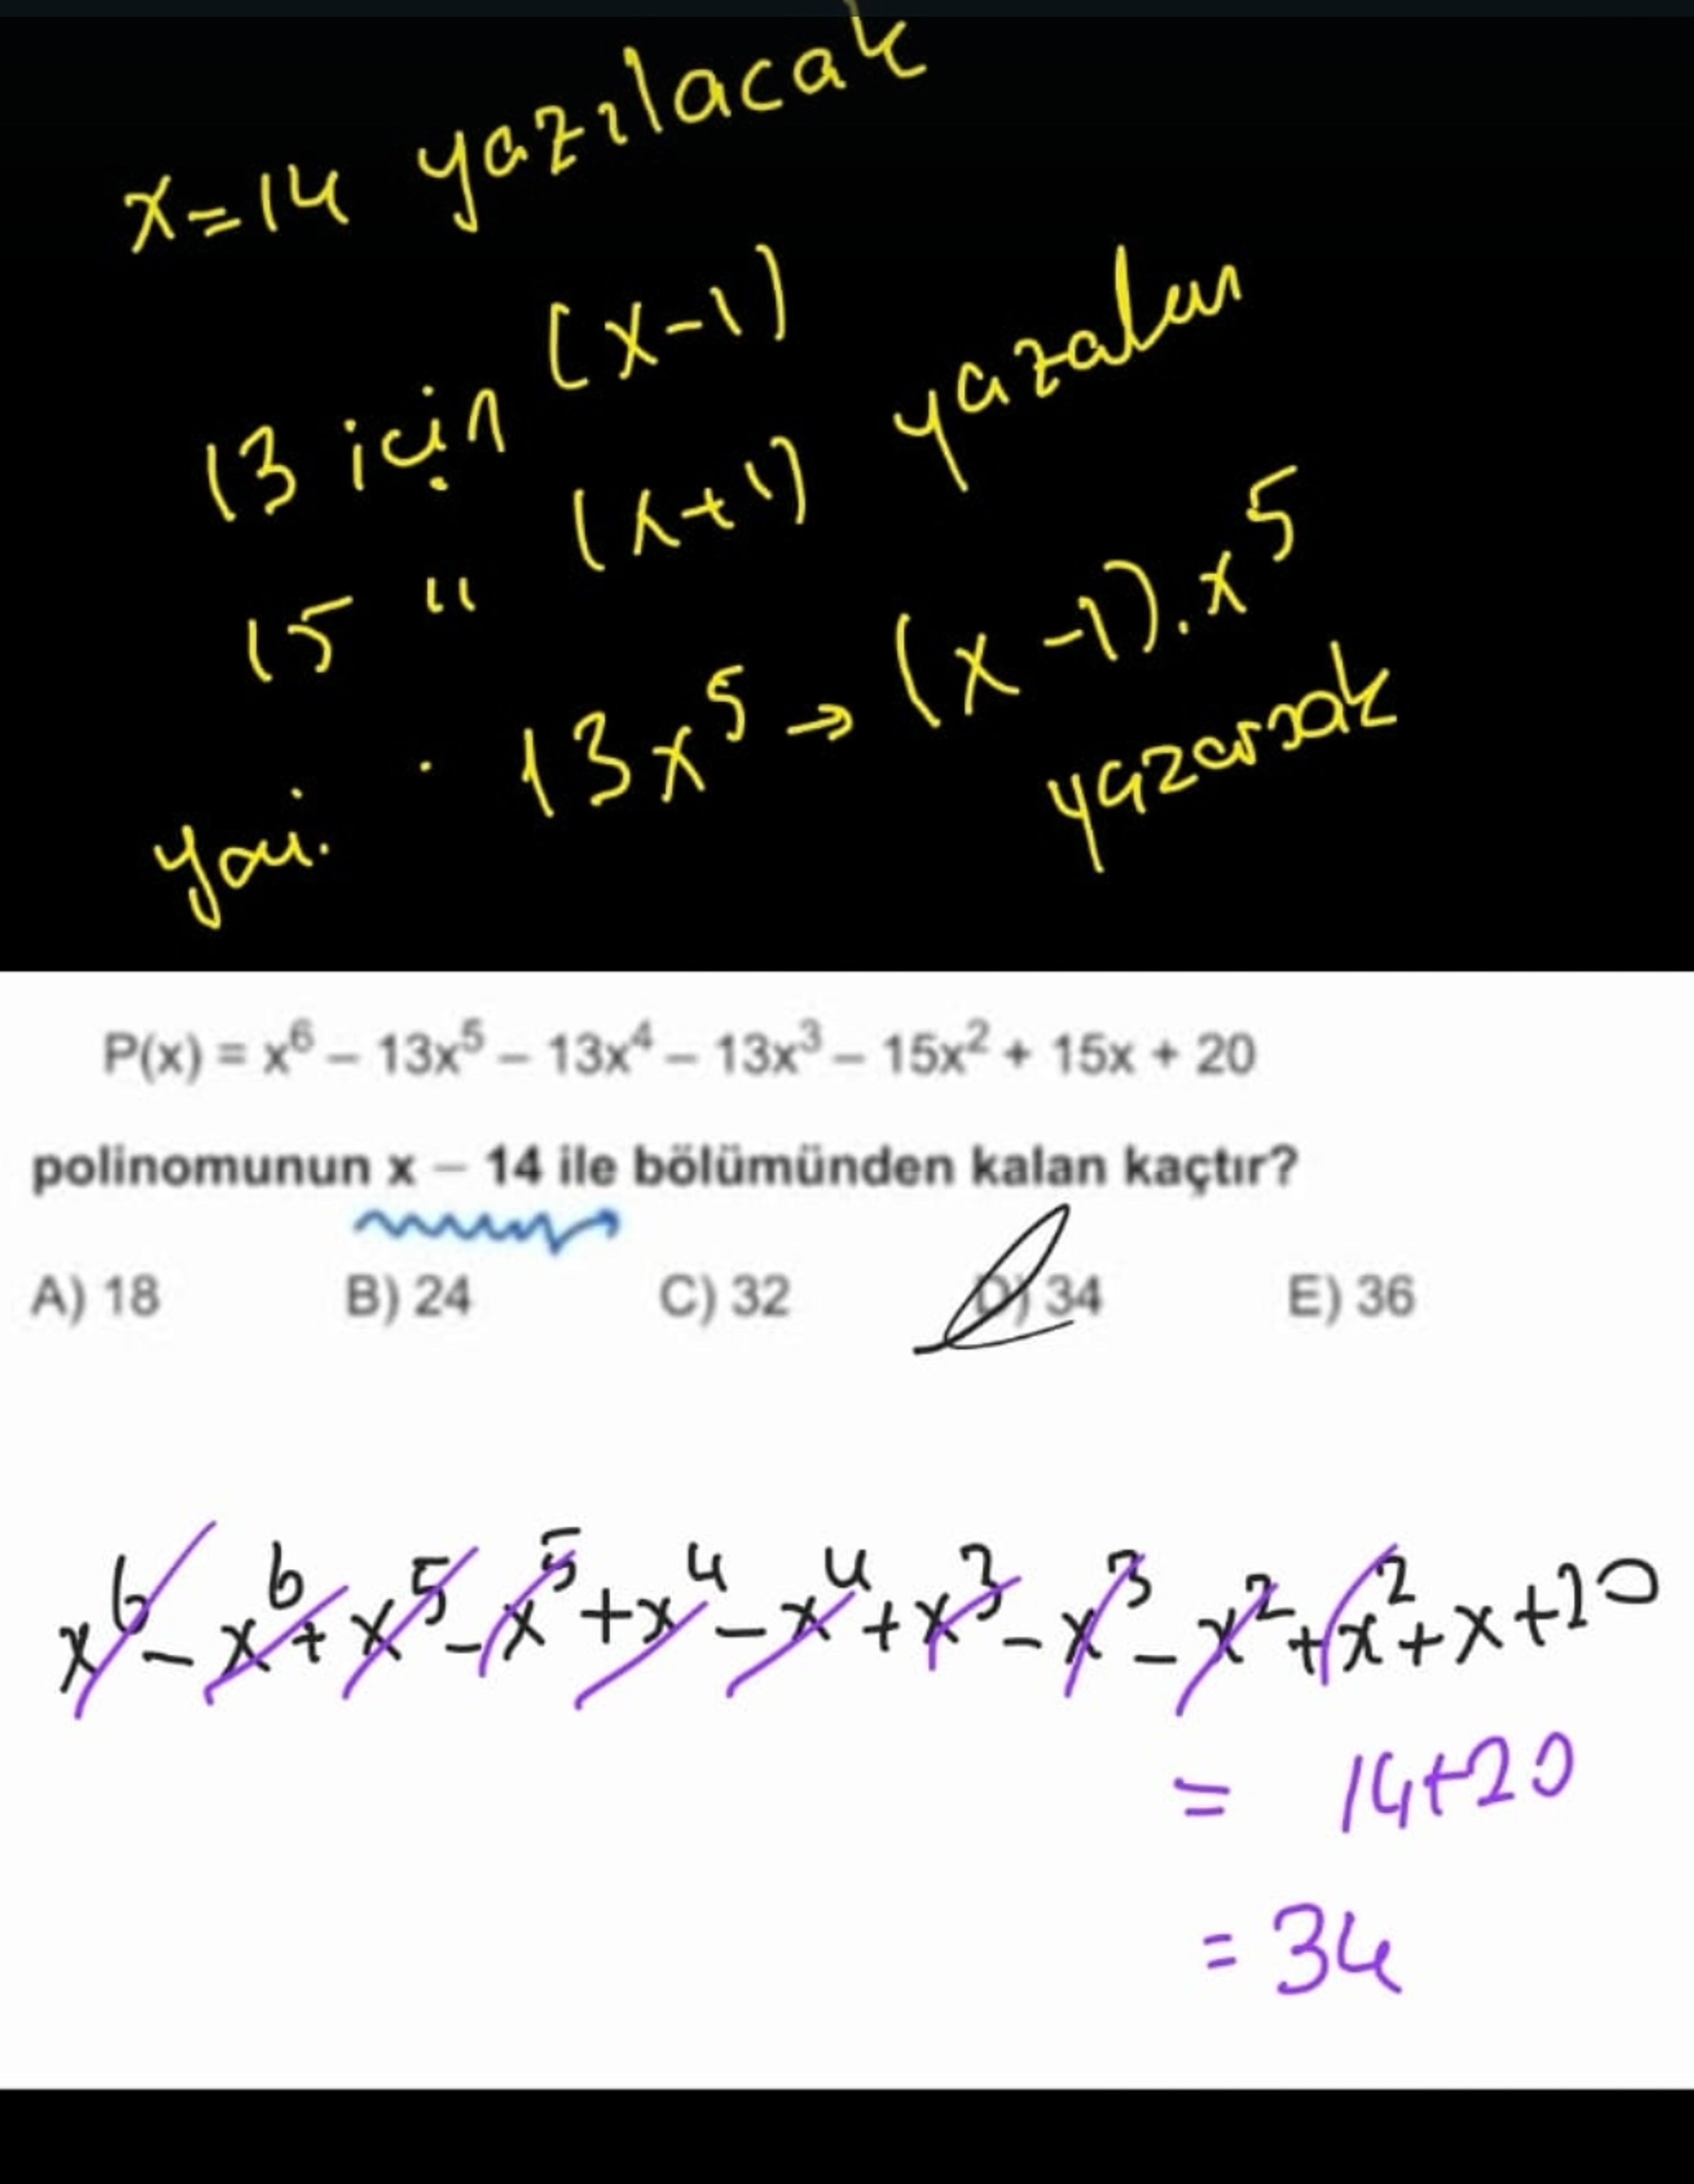 x=14 yazılacak
13 için (x-1)
15 " (x+1) yazalım
yani. 13x⁵ → (x-1).x⁵
yazarsak
P(x) = x⁶ – 13x⁵ – 13x⁴ – 13x³ – 15x² + 15x + 20
polinomunun x – 14 ile bölümünden kalan kaçtır?
A) 18 B) 24 C) 32 D) 34 E) 36
x⁶ - x⁶ + x⁵ - x⁵ + x⁴ - x⁴ + x³ - x³ - x² + x² + x + 20
= 14+20
= 34